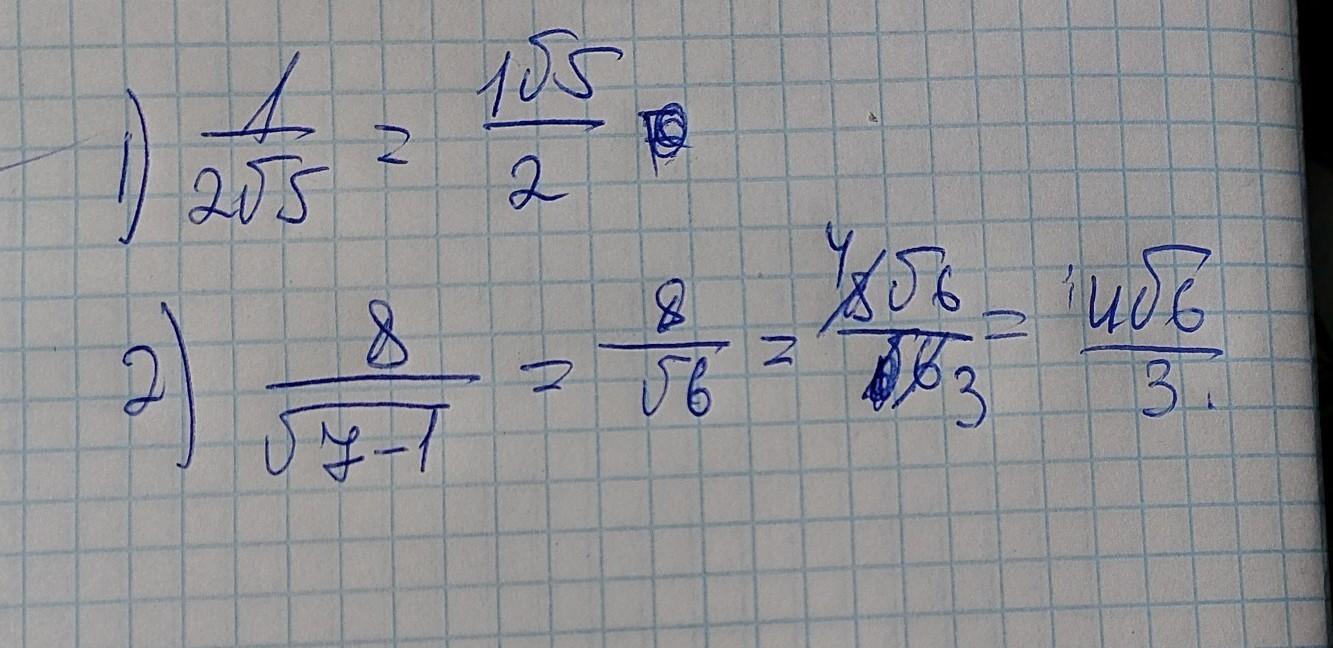 1) 1/(2√5) = 1√5/2
2) 8/√(7-1) = 8/√6 = 8√6/6 4 3 = 4√6/3.